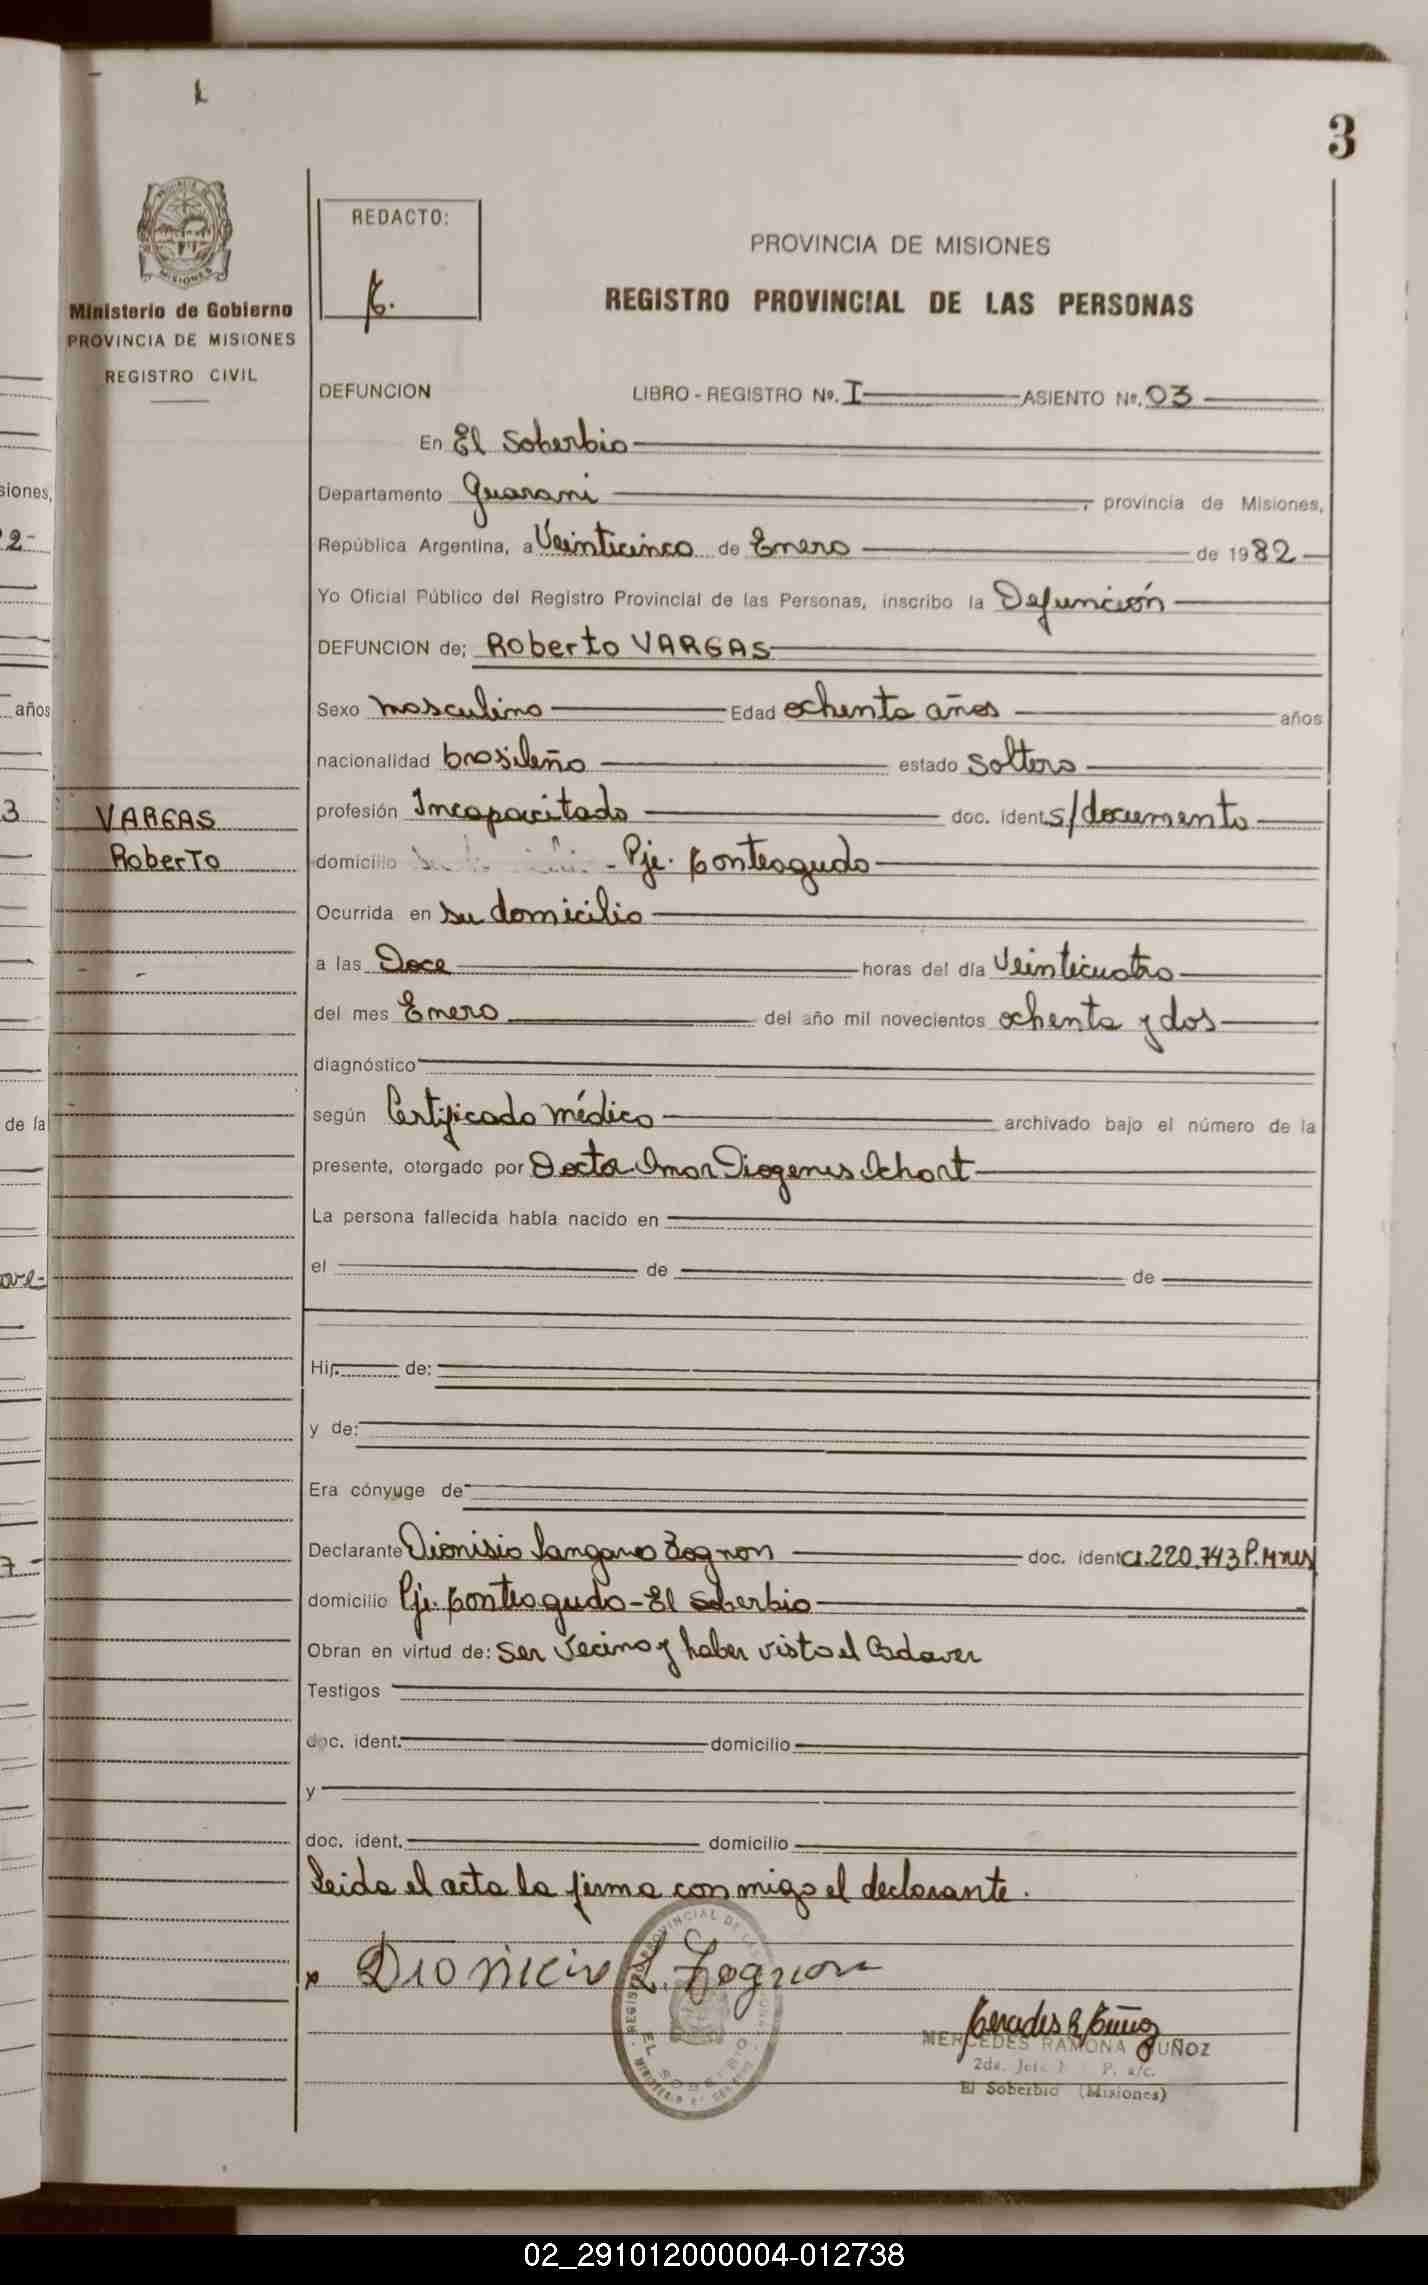 3
MISIONES
Ministerio de Gobierno
PROVINCIA DE MISIONES
REGISTRO CIVIL
REDACTO:
PROVINCIA DE MISIONES
REGISTRO PROVINCIAL DE LAS PERSONAS
DEFUNCION LIBRO - REGISTRO Nº. I ASIENTO Nº. 03
En El Soberbio
Departamento Guarani , provincia de Misiones,
República Argentina, a Veinticinco de Enero de 1982
Yo Oficial Público del Registro Provincial de las Personas, inscribo la Defunción
DEFUNCION de; Roberto VARGAS
Sexo masculino Edad ochenta años años
nacionalidad brasileño estado soltero
VARGAS
Roberto
profesión Incapacitado doc. ident. s/documento
domicilio Pje. Monteagudo
Ocurrida en su domicilio
a las Doce horas del día Veinticuatro
del mes Enero del año mil novecientos ochenta y dos
diagnóstico
según Certificado médico archivado bajo el número de la
presente, otorgado por Doctor Omar Diogenes
La persona fallecida había nacido en
el de de
Hij. de:
y de:
Era cónyuge de
Declarante Dionisio Zognon doc. ident CI.220.743 P.Mnes
domicilio Pje. Monteagudo - El Soberbio
Obran en virtud de: ser vecino y haber visto el Cadaver
Testigos
doc. ident. domicilio
y
doc. ident. domicilio
Leida el acta la firma conmigo el declarante.
x Dionicio L. Zognon
REGISTRO PROVINCIAL DE LAS PERSONAS
EL SOBERBIO
MINISTERIO DE GOBIERNO
Mercedes R. Muñoz
MERCEDES RAMONA MUÑOZ
El Soberbio (Misiones)
siones,
2-
años
3
de la
7-
02_291012000004-012738